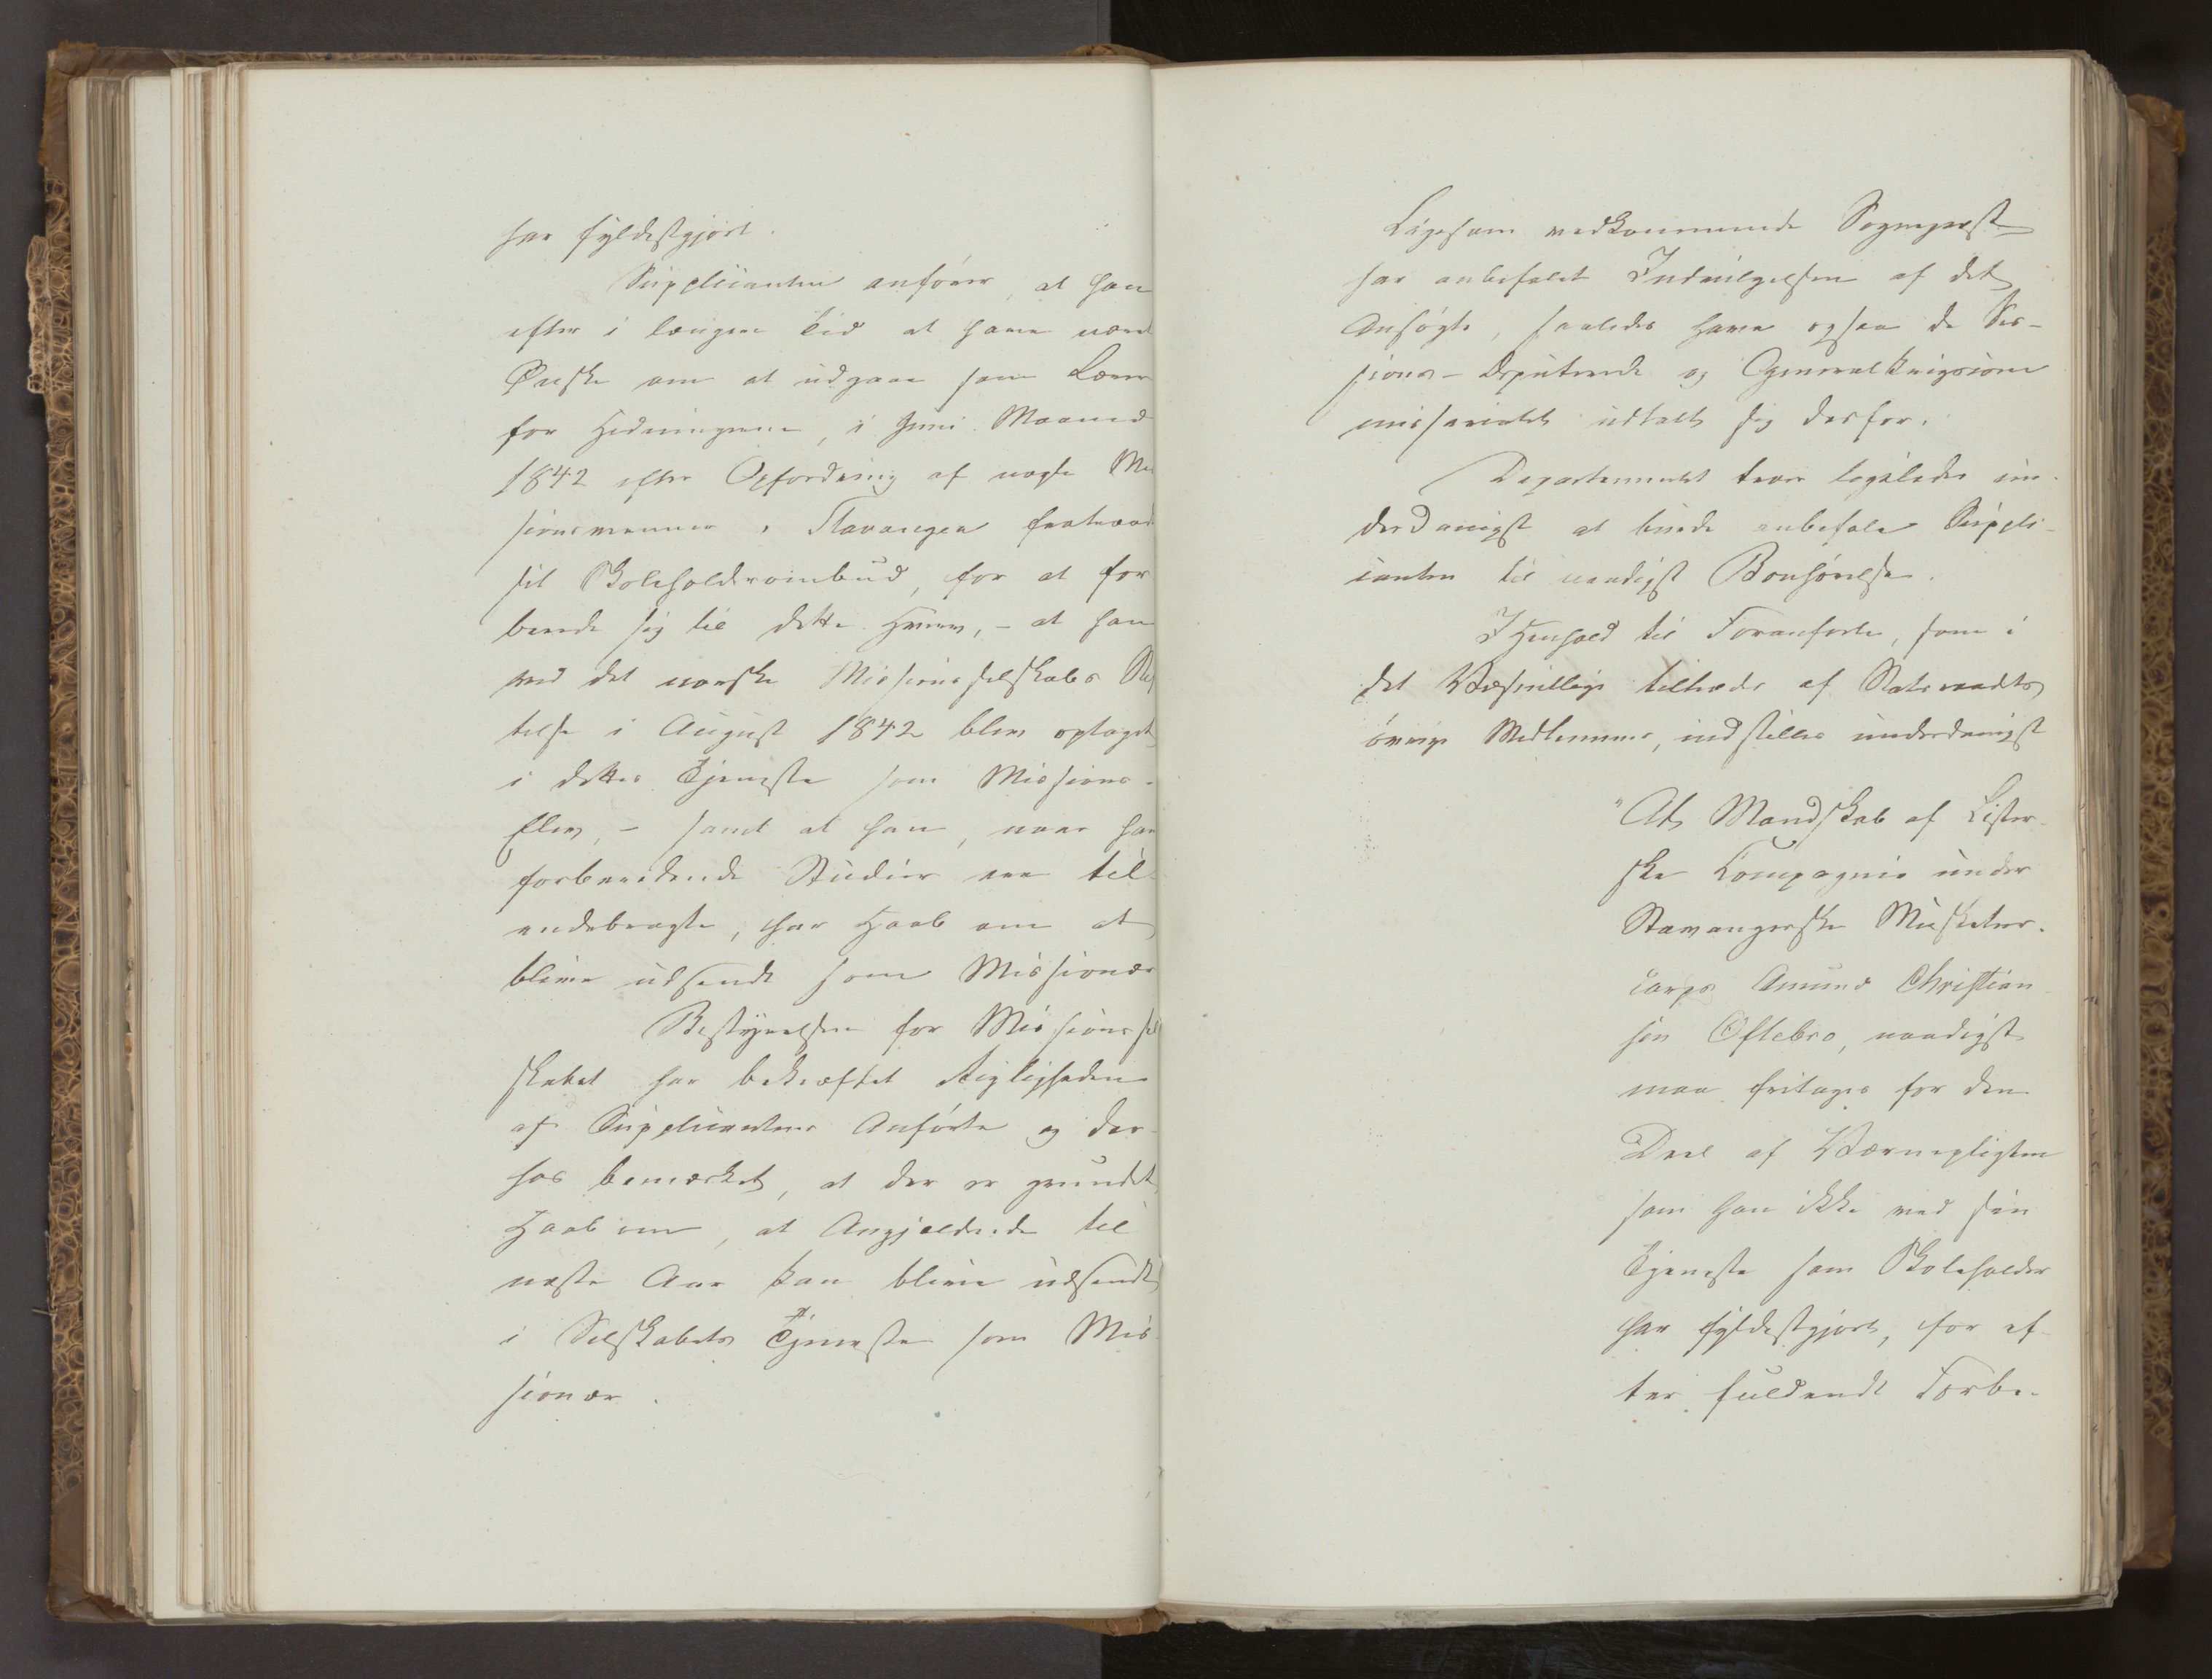 har fyldestgjort.
Supplicanten anfører, at han
efter i længere Tid at have næret
Ønske om at udgaae som Lærer
for Hedningerne, i Juni Maaned
1842 efter Opfordring af nogle Mis
sionsvenner i Stavanger fratraadte
sit Skoleholderombud, for at for
berede sig til dette Hverv, - at han
ved det norske Missionsselskabs Stif
telse i August 1842 blev optaget
i dettes Tjeneste som Missions-
Elev, - samt at han, naar hans
forberedende Studier ere til
endebragte, har Haab om at
blive udsendt som Missionær
Bestyrelsen for Missionssel
skabet har bekræftet Rigtigheden
af Supplicantens Anførte og der-
hos bemærket, at der er grundet
Haab om, at Angjeldende til
næste Aar kan blive udsendt
i Selskabets Tjeneste som Mis
sionær.
Ligesom vedkommende Sogneprest
har anbefalet Indvilgelsen af det
Ansøgte, saaledes have ogsaa de Ses-
sions-Deputerede og Generalkrigscom
missariatet udtalt sig derfor.
Departementet troer ligeledes un-
derdanigst at burde anbefale Suppli-
canten til naadigst Bønhørelse.
I Henhold til Foranførte, som i
det Væsentlige tiltrædes af Statsraadets
øvrige Medlemmer, indstilles underdanigst
"At Mandskab af Lister-
ske Compagnie under
Stavangerske Musketeer-
corps Amund Christian-
sen Oftebro, naadigst
maa fritages for den
Deel af Værnepligten
som han ikke ved sin
Tjeneste som Skoleholder
har fyldestgjort, for ef-
ter fuldendt Forbe-